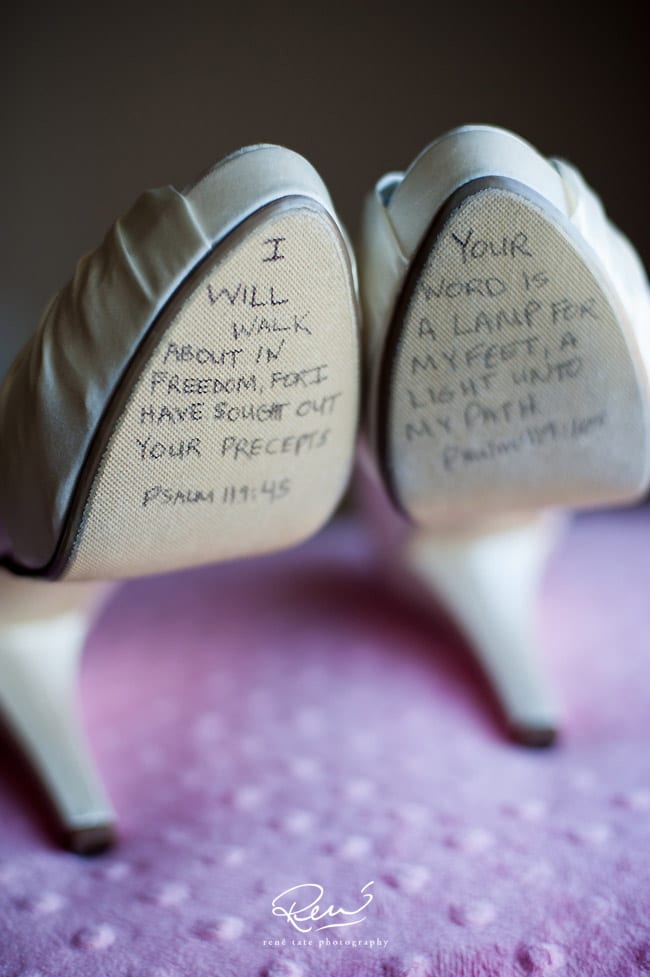 I
WILL
WALK
ABOUT IN
FREEDOM, FOR I
HAVE SOUGHT OUT
YOUR PRECEPTS
PSALM 119:45
YOUR
WORD IS
A LAMP FOR
MY FEET, A
LIGHT UNTO
MY PATH
Psalm 119:105
René
rené tate photography